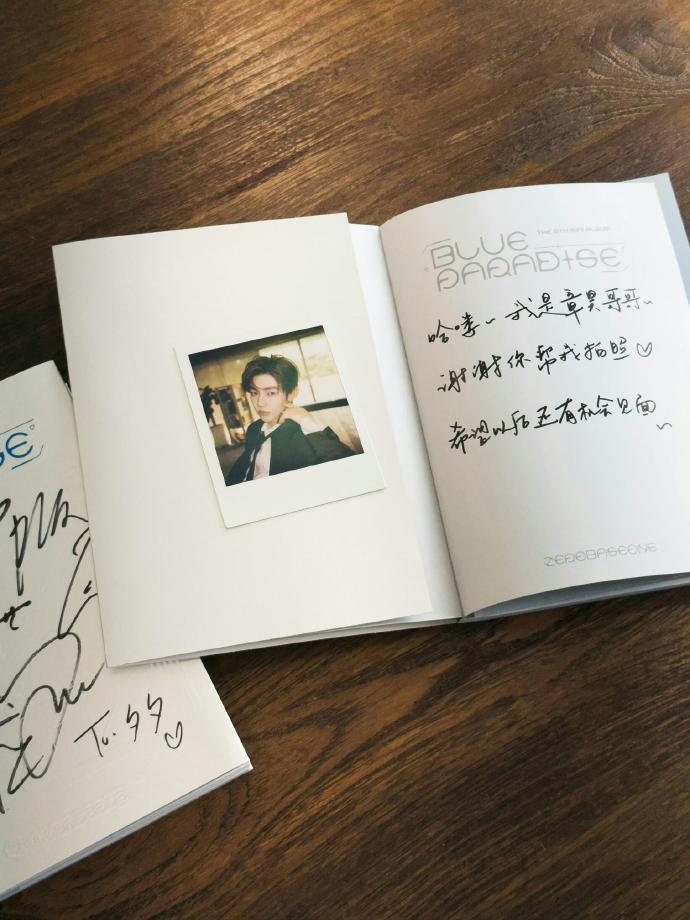 SE
To. 多多♡
THE 5TH MINI ALBUM
BLUE
PARADISE
哈喽~ 我是章昊哥哥~
谢谢你帮我拍照♡
希望以后还有机会见面~
ZEROBASEONE